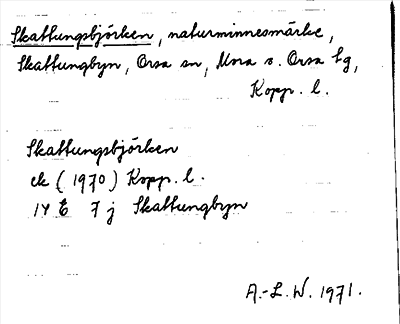 Skattungsbjörken, naturminnesmärke,
Skattungbyn, Orsa sn, Mora o. Orsa tg,
Kopp. l.
Skattungsbjörken
ek (1970) Kopp. l.
14 E 7 j Skattungbyn
A.-L. W. 1971.